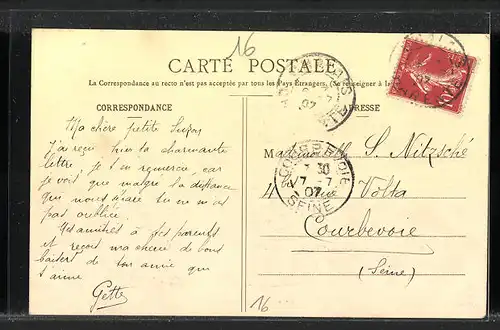 16
CARTE POSTALE
La Correspondance au recto n'est pas acceptée par tous les Pays Étrangers. (Se renseigner à la
CORRESPONDANCE
ADRESSE
Ma chère petite Suzon
J'ai reçu hier ta charmante
lettre je t'en remercie, car
je vois que malgré la distance
que nous sépare tu ne m'as
pas oubliée.
Mes amitiés à tes parents
et reçois ma chérie de bons
baisers de ton amie qui
t'aime
Gette
Mademoiselle S. Nitzsché
4 Rue Volta
Courbevoie
(Seine)
COURBEVOIE
7 30
17 - 7
07
SEINE
16